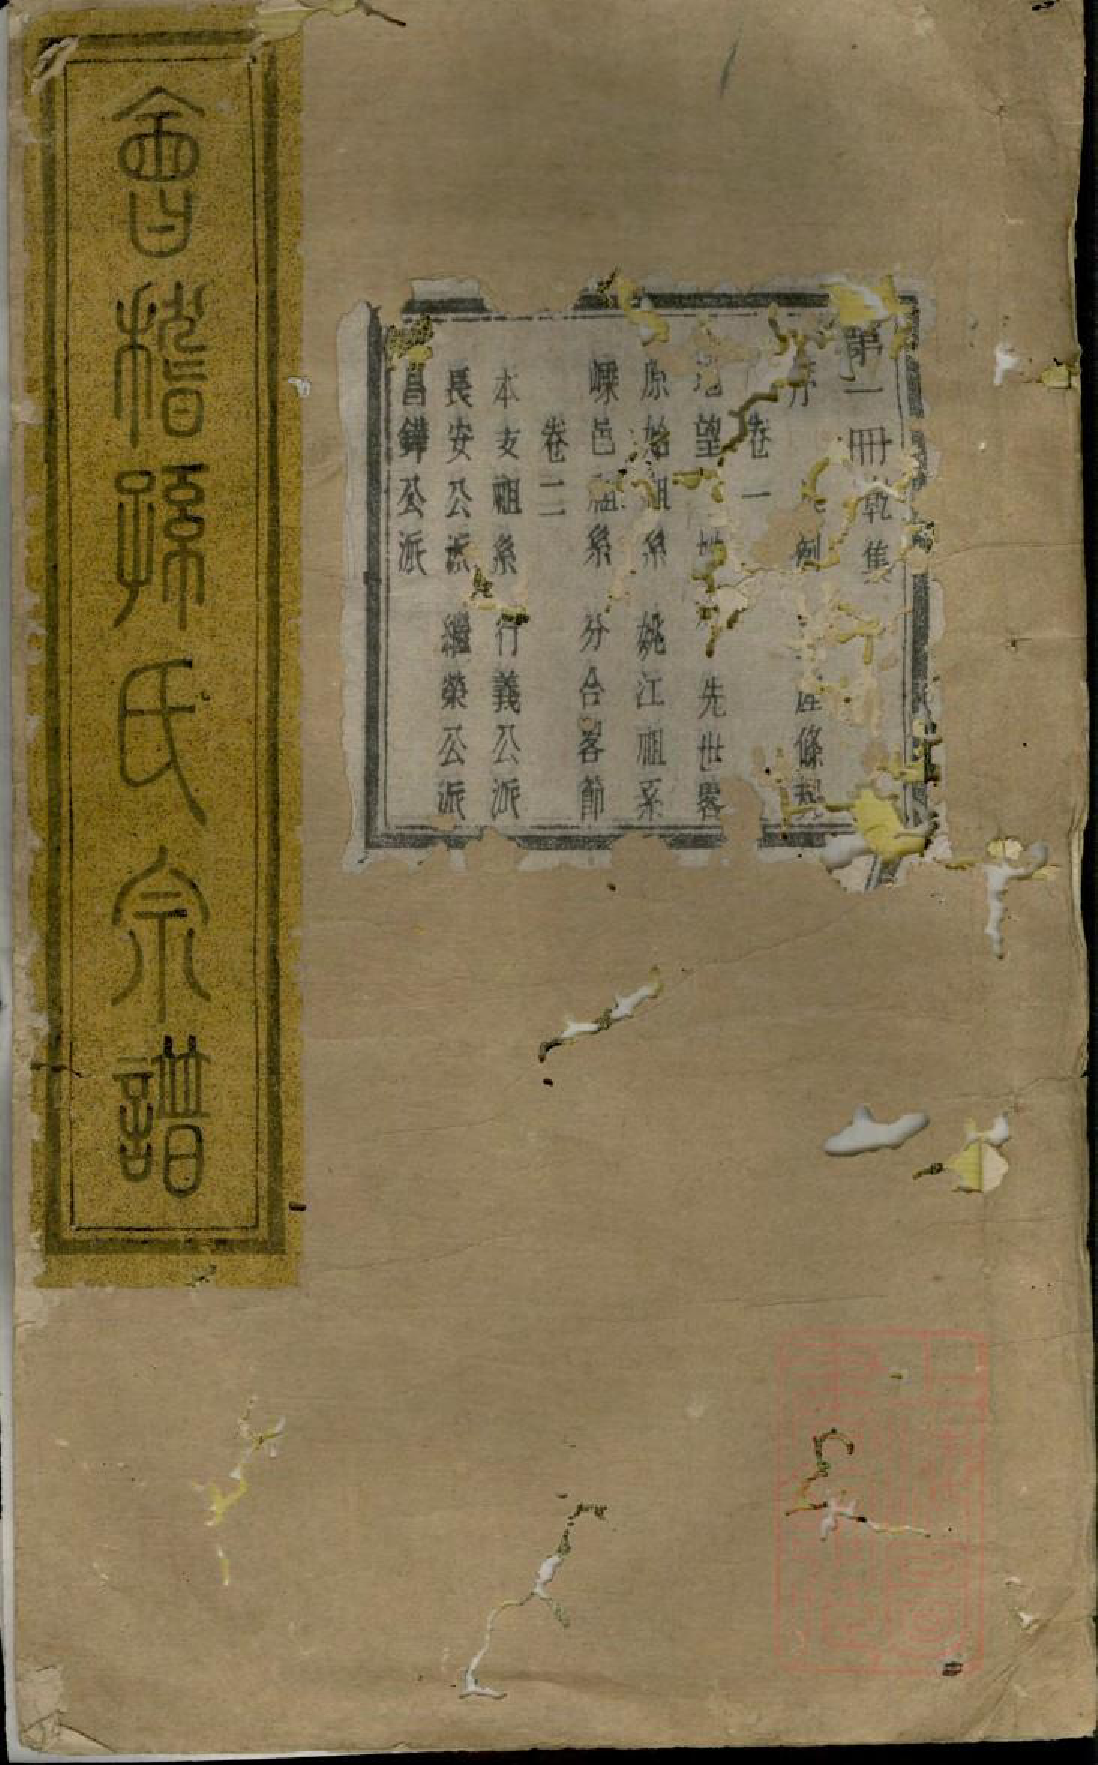 會稽孫氏宗譜
第一冊 乾集
序 例 條
卷一
地望 先世畧
原始祖系 姚江祖系
嵊邑祖系 分合畧節
卷二
本支祖系 行義公派
長安公派 繼榮公派
昌鏵公派